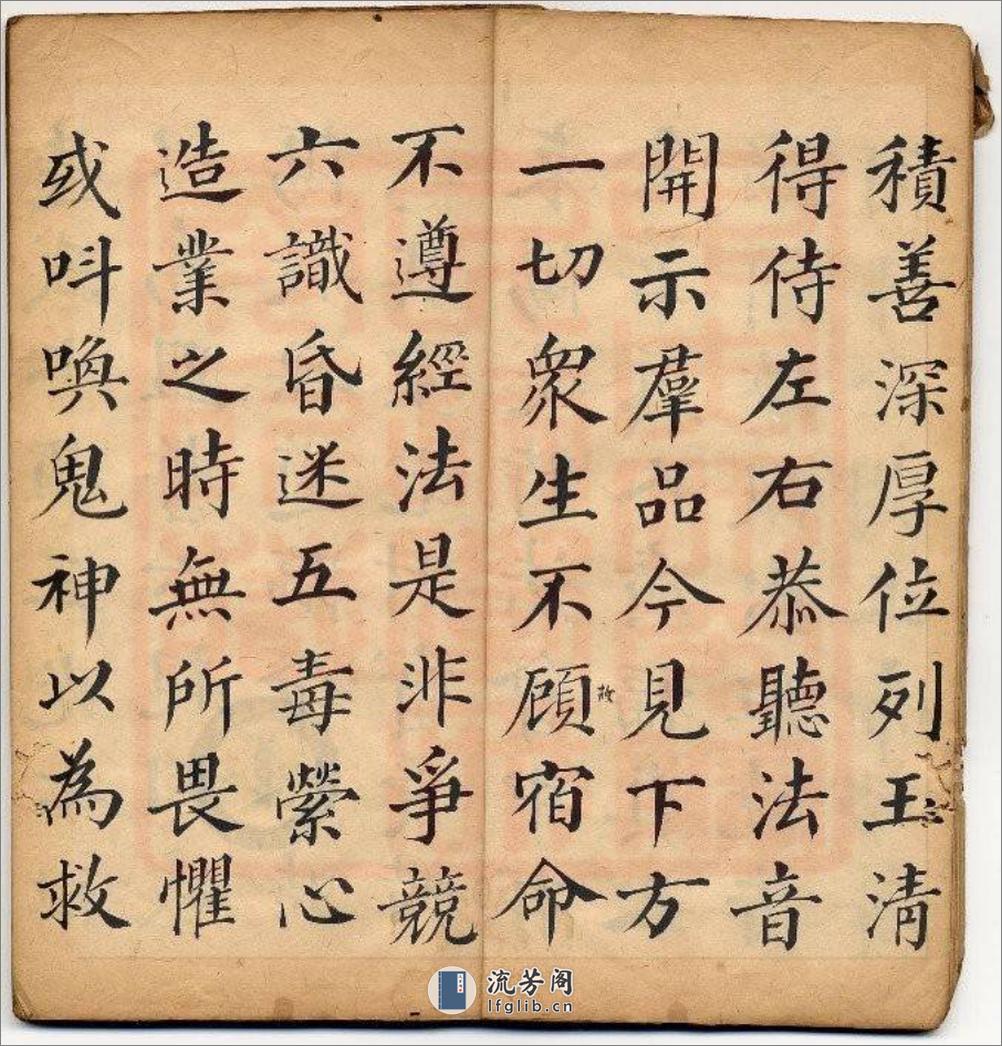 積善深厚位列王清
得侍左右恭聽法音
開示羣品今見下方
一切衆生不顧宿命
不遵經法是非爭競
六識昏迷五毒縈心
造業之時無所畏懼
或呌喚鬼神以為救
流芳阁
lfglib.cn